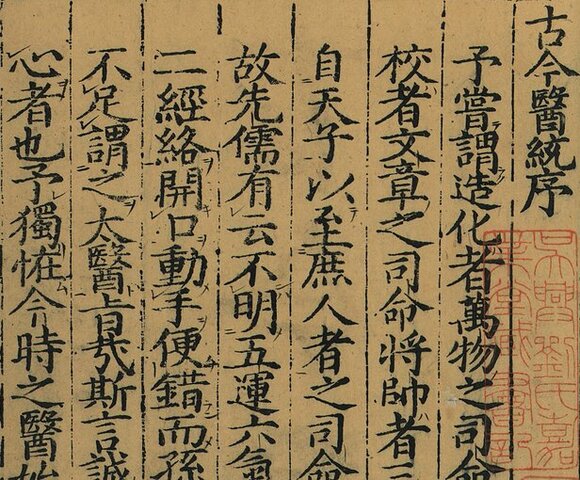 古今醫統序
予嘗謂造化者萬物之司命
校者文章之司命將帥者
自天子以至庶人者之司命
故先儒有云不明五運六氣
二經絡開口動手便錯而孫
不足謂之太醫旨哉斯言誠
心者也予獨恠今時之醫始
吳興劉氏嘉
業堂藏書